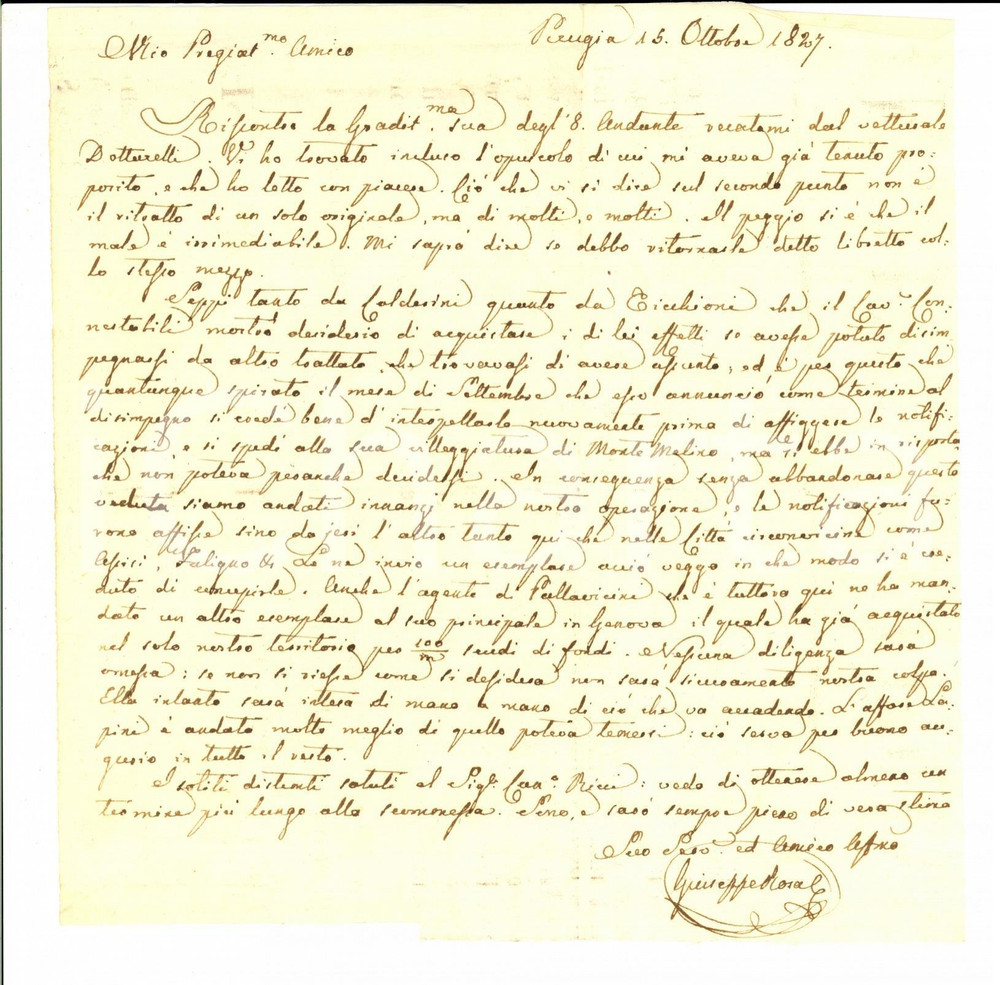 Perugia 15. Ottobre 1827.
Mio Pregiat.mo Amico
Riscontro la Gradit.ma sua degl'8. Andante recatami dal vetturale
Dotturelli. Vi ho trovato incluso l'opuscolo di cui mi aveva già tenuto pro-
posito, e che ho letto con piacere. Ciò che vi si dice sul secondo punto non è
il ritratto di un solo originale, ma di molti, e molti. Il peggio si è che il
male è irrimediabile. Mi saprà dire se debbo ritornarle detto libretto col-
lo stesso mezzo.
Seppi tanto da Calderini quanto da Cicchioni che il Cav.r Con-
nestabili mostrò desiderio di acquistare i di lei effetti se avesse potuto disim
pegnarsi da altro trattato, che trovavasi di avere assunto; ed è per questo che
quantunque spirato il mese di Settembre che esso annunciò come termine al
disimpegno si credé bene d'interpellarlo nuovamente prima di affiggere le notifi-
cazioni, e si spedì alla sua villeggiatura di Monte Melino, ma se ne ebbe in risposta
che non poteva peranche decidersi. In conseguenza senza abbandonare questa
veduta siamo andati innanzi nella nostra operazione, e le notificazioni fu-
rono affisse sino da jeri l'altro tanto qui che nelle Città circonvicine come
Assisi, Faligno &. Le ne invio un esemplare acciò vegga in che modo si è cre-
duto di concepirle. Anche l'agente di Pallavicini che è tuttora qui ne ha man-
dato un altro esemplare al suo principale in Genova il quale ha già acquistato
nel solo nostro territorio per 100/m scudi di fondi. Nessuna diligenza sarà
omessa: se non si riesce come si desidera non sarà sicuramente nostra colpa.
Ella intanto sarà intesa di mano a mano di ciò che va accadendo. L'affare La-
pini è andato molto meglio di quello poteva temersi: ciò serva per buono au-
gurio in tutto il resto.
I soliti distinti saluti al Sig.r Can.o Ricci: veda di ottenere almeno un
termine più lungo alla scommessa. Sono, e sarò sempre pieno di vera stima
Suo Serv.e ed Amico Affmo
Giuseppe Rosa